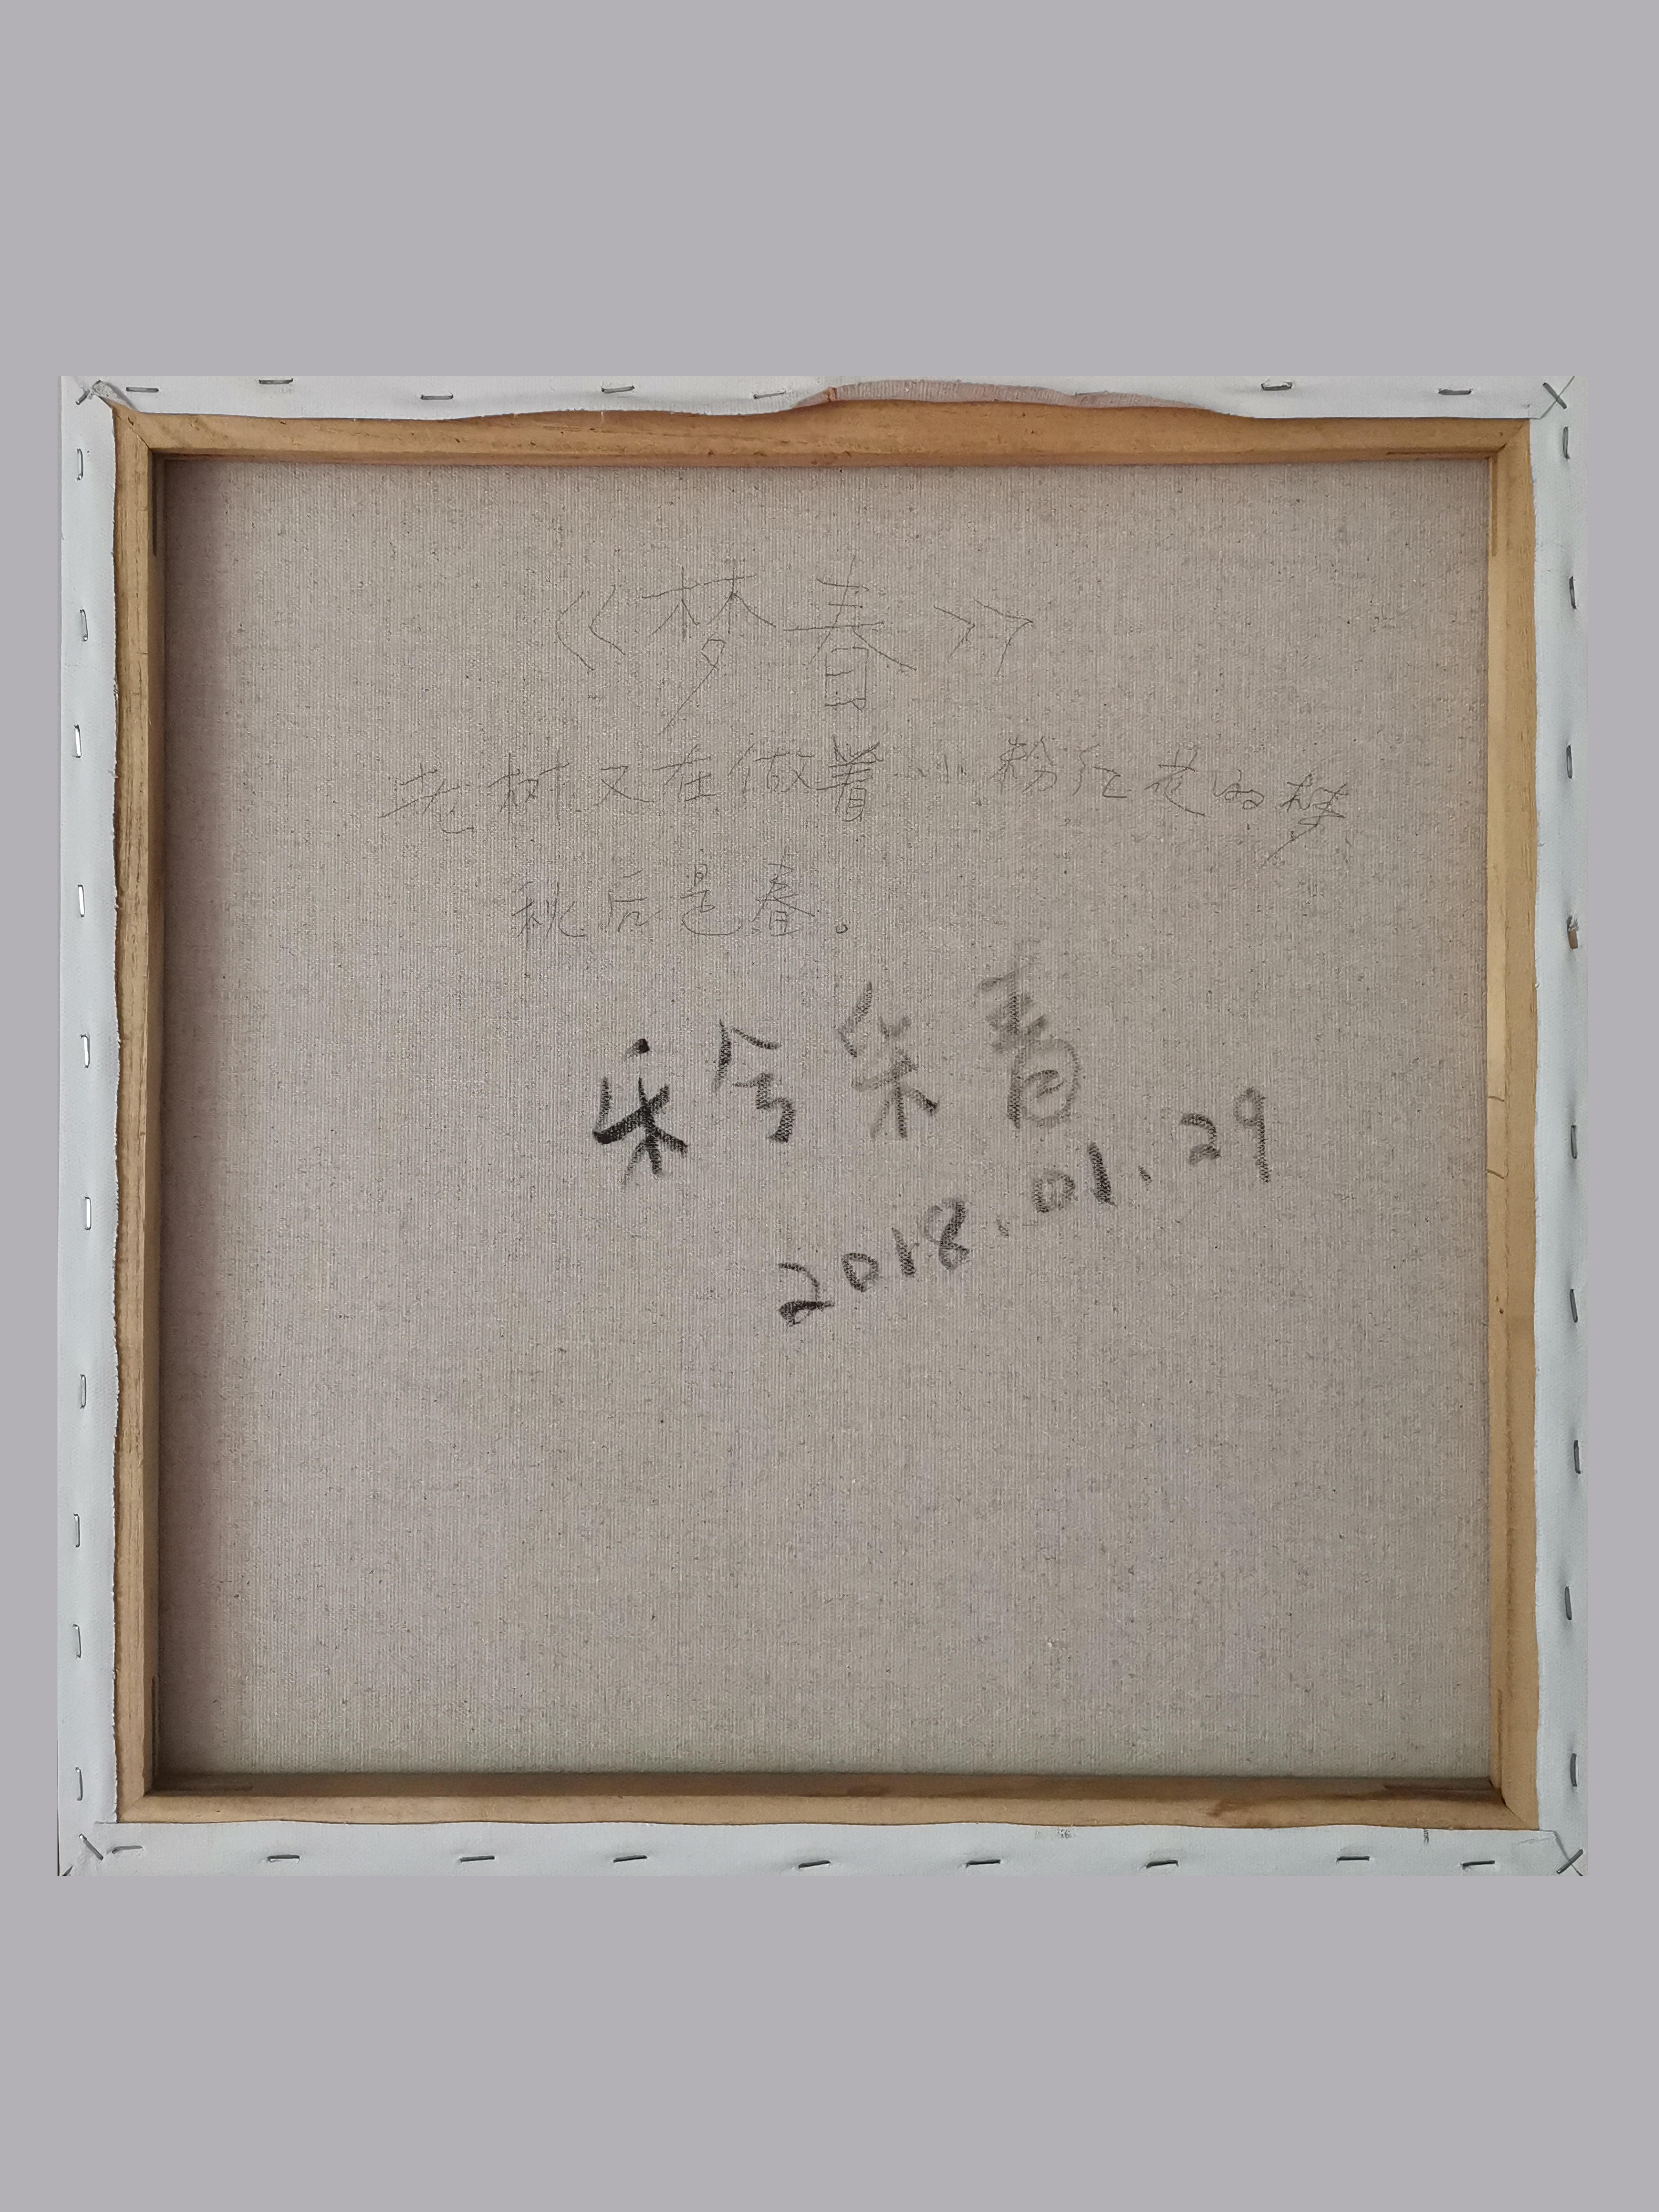 《梦春》
老树又在做着小粉红花的梦
秋后是春。
乐
2018.01.29